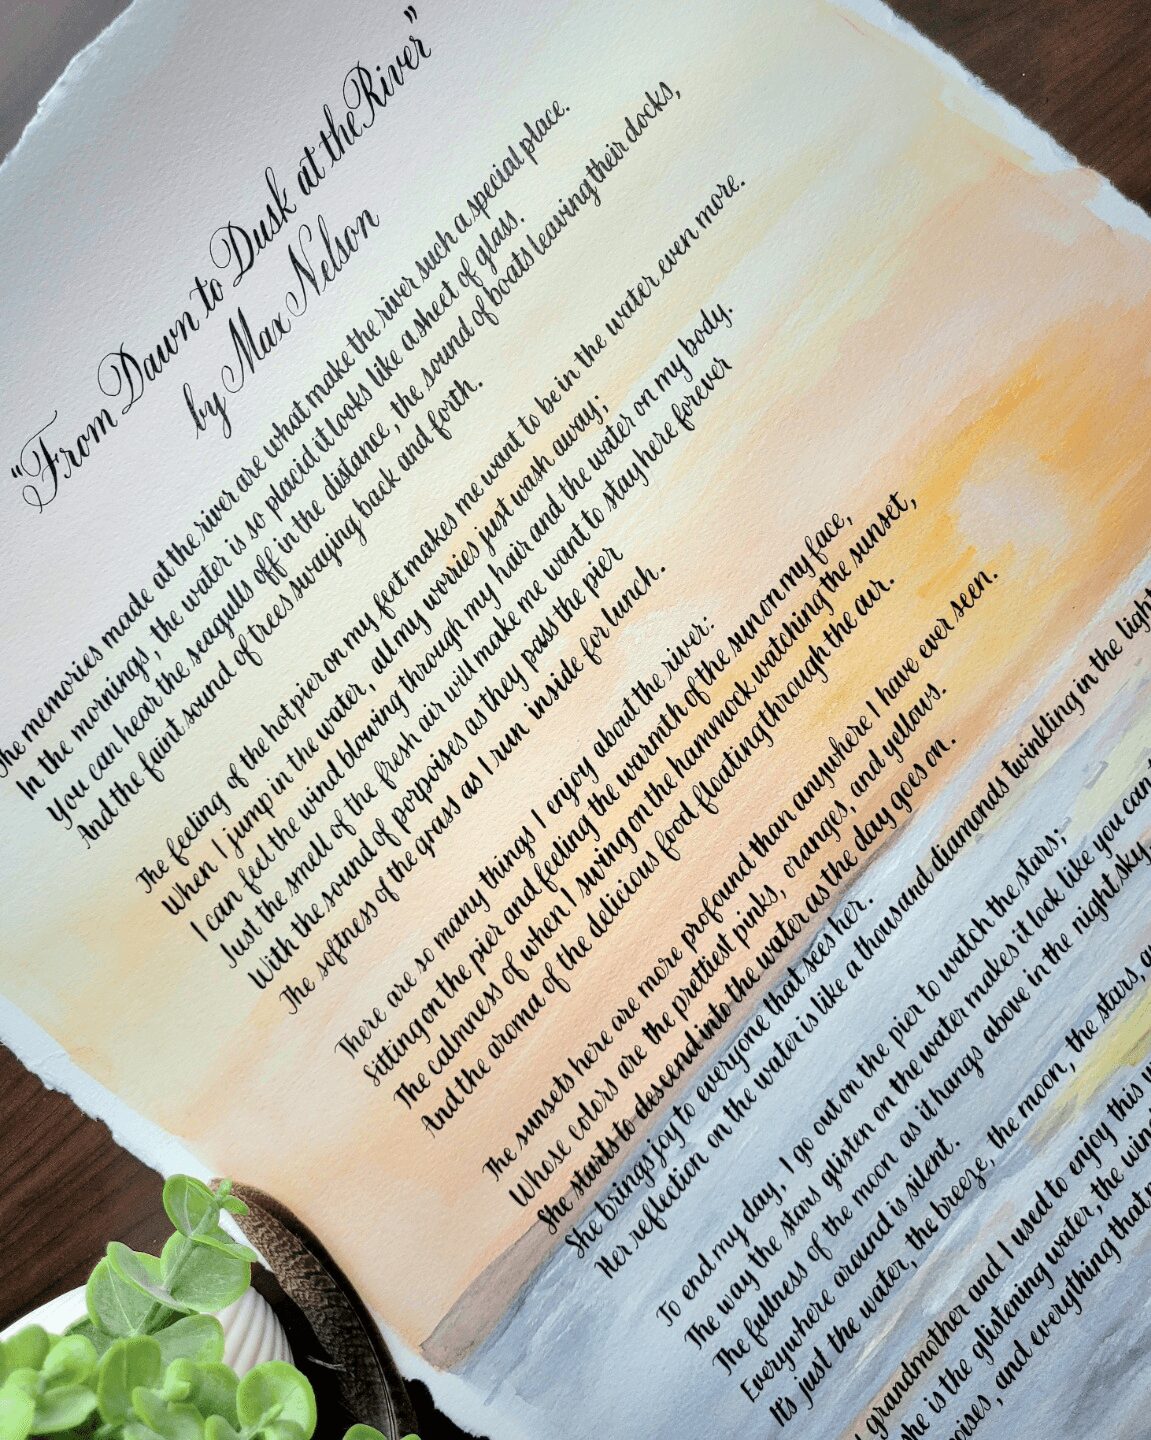 "From Dawn to Dusk at the River"
by Max Nelson
The memories made at the river are what make the river such a special place.
In the mornings, the water is so placid it looks like a sheet of glass.
You can hear the seagulls off in the distance, the sound of boats leaving their docks,
And the faint sound of trees swaying back and forth.
The feeling of the hot pier on my feet makes me want to be in the water even more.
When I jump in the water, all my worries just wash away;
I can feel the wind blowing through my hair and the water on my body.
Just the smell of the fresh air will make me want to stay here forever
With the sound of porpoises as they pass the pier
The softness of the grass as I run inside for lunch.
There are so many things I enjoy about the river:
Sitting on the pier and feeling the warmth of the sun on my face,
The calmness of when I swing on the hammock watching the sunset,
And the aroma of the delicious food floating through the air.
The sunsets here are more profound than anywhere I have ever seen.
Whose colors are the prettiest pinks, oranges, and yellows.
She starts to descend into the water as the day goes on.
She brings joy to everyone that sees her.
Her reflection on the water is like a thousand diamonds twinkling in the light
To end my day, I go out on the pier to watch the stars;
The way the stars glisten on the water makes it look like you can
The fullness of the moon as it hangs above in the night sky,
Everywhere around is silent.
It's just the water, the breeze, the moon, the stars,
grandmother and I used to enjoy this
she is the glistening water, the
and everything that